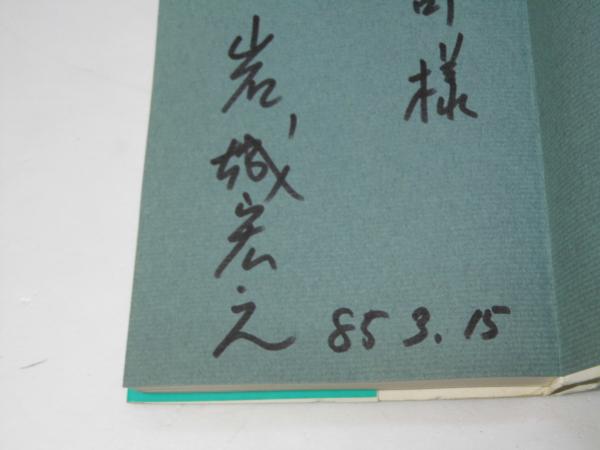 様
岩城宏之
85 3.15